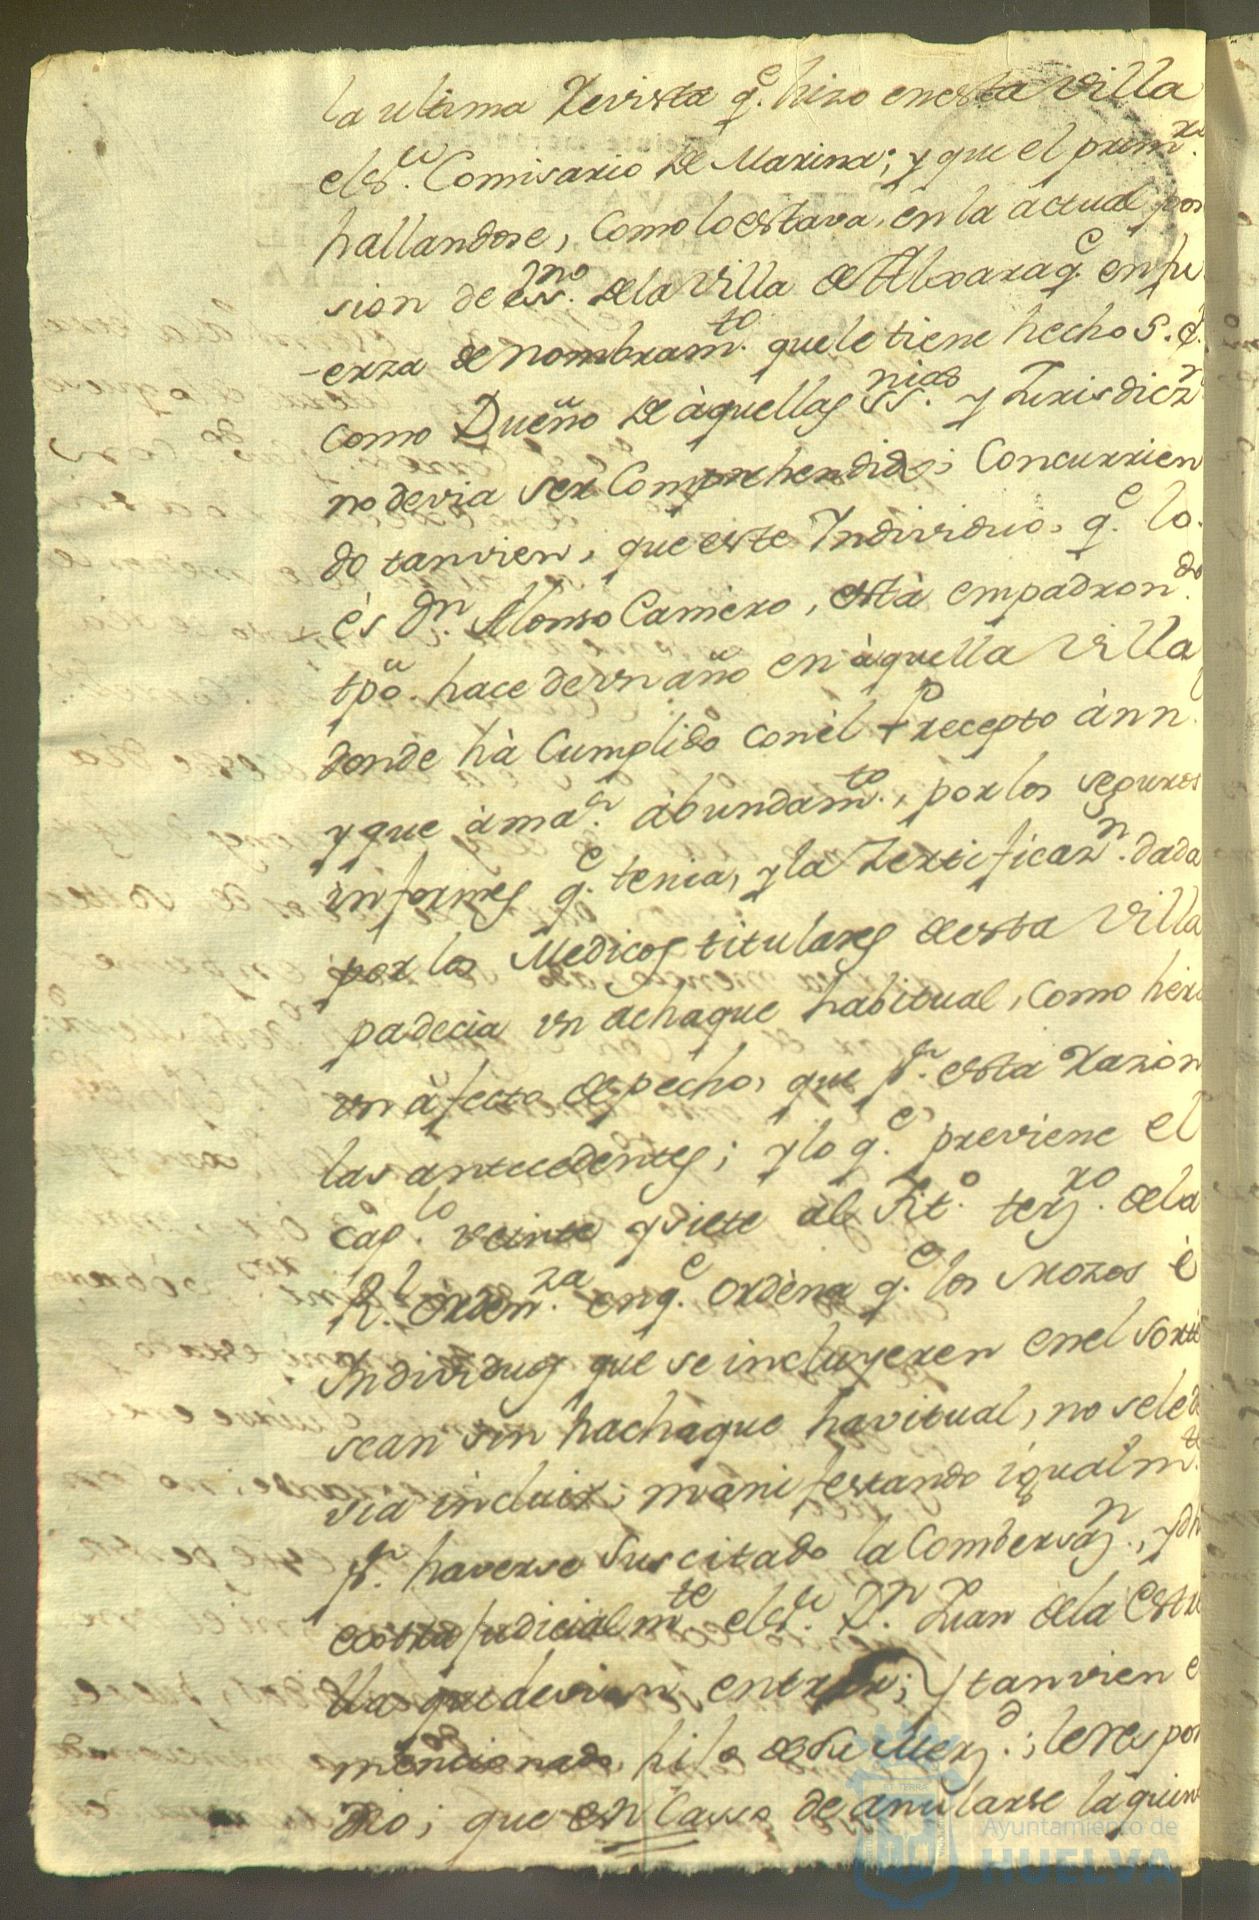 la ultima Revista q.e hizo en esta Villa
el S.r Comisario de Marina; y que el prim.ro
hallandose, Como lo estava, en la actual pos
sion de Ess.no de la Villa de Alxaraq.e en fu
-erza de nombram.to que le tiene hecho S. E.
como Dueño de àquellas SS.nias y Jurisdicz.n
no devia ser Comprehendido; Concurrien
do tanvien, que este Yndividuo, q.e lo
ès D.n Alonso Camero, està empadron.do
tpõ. hace de vn año en àquella Villa
donde hà Cumplido con èl Precepto ànn.
y que à ma.r àbundam.to, por los seguros
informes q.e tenia, y la Zertificaz.n dada
por los Medicos titulares de esta Villa
padecia vn achaque habitual, Como hera
vn àfecto de pecho, que p.r esta Razòn
las antecedentes; y lo q.e previene el
Cap.lo veinte y siete al Tit.o terz.ro de la
R.l Òrden.za en q.e Ordèna q.e los Mozos è
Individuos que se incluyeren en el Sorte
sean sin hachaque havitual, no se le de
via incluir; manifestando igualm.te
p.r haverse Suscitado la Combersaz.n, y dh
extrajudicialm.te el S.r D.n Juan de la Estre
lla que devian entrar; y tanvien e
mencionado hijo de Su Merz.d; le respon
dio; que en Casso de anularse la quin
Ayuntamiento de
HUELVA